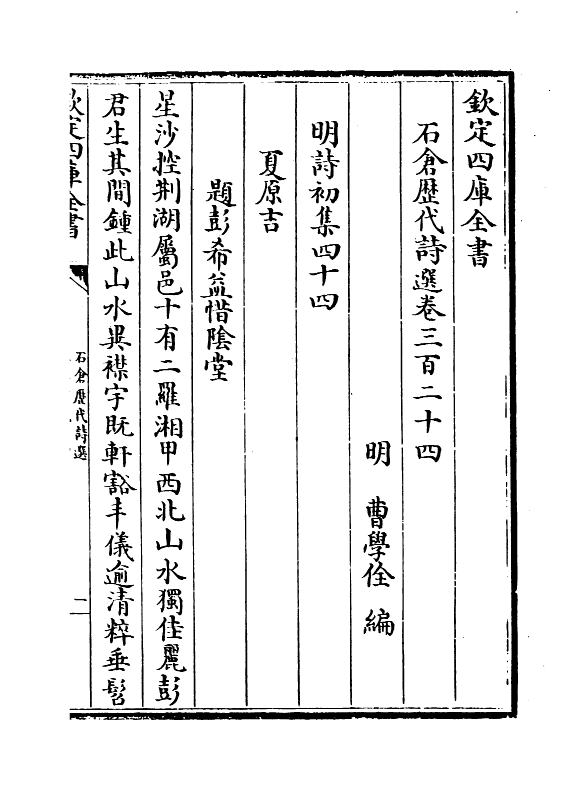 欽定四庫全書
石倉歷代詩選卷三百二十四
明 曹學佺 編
明詩初集四十四
夏原吉
題彭希益惜陰堂
星沙控荆湖屬邑十有二羅湘甲西北山水獨佳麗彭
君生其間鍾此山水異襟宇既軒豁丰儀逾清粹垂髫
欽定四庫全書
石倉歷代詩選